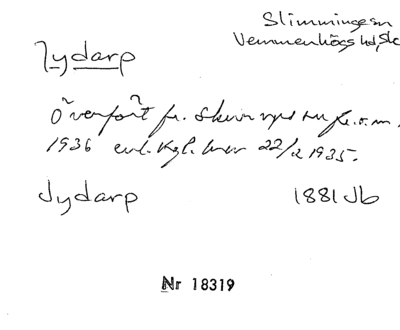 Slimminge sn
Vemmenhögs hd, Sk
Jydarp
Överfört fr. Skurups sn fr.o.m.
1936 enl. Kgl. brev 22/2 1935.
Jydarp 1881 Jb
Nr 18319